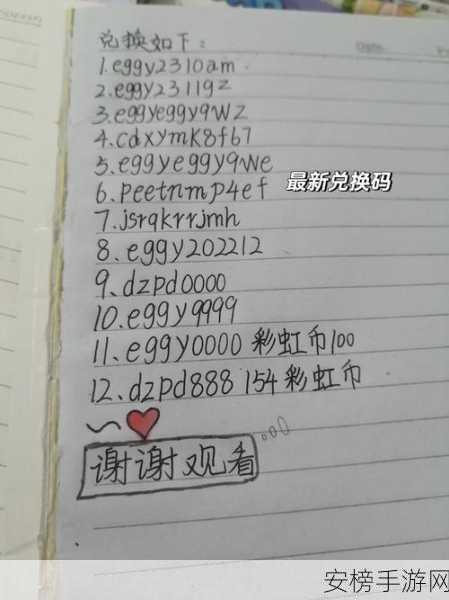 兑换如下：
1.eggy2310am
2.eggy2311gz
3.eggyeggy9wz
4.cdxymk8fb7
5.eggyeggy9we
6.peetnmp4ef
最新兑换码
7.jsrqkrrjmh
8.eggy202212
9.dzpd0000
10.eggy9999
11.eggy0000 彩虹币100
12.dzpd888 154彩虹币
谢谢观看
安榜手游网